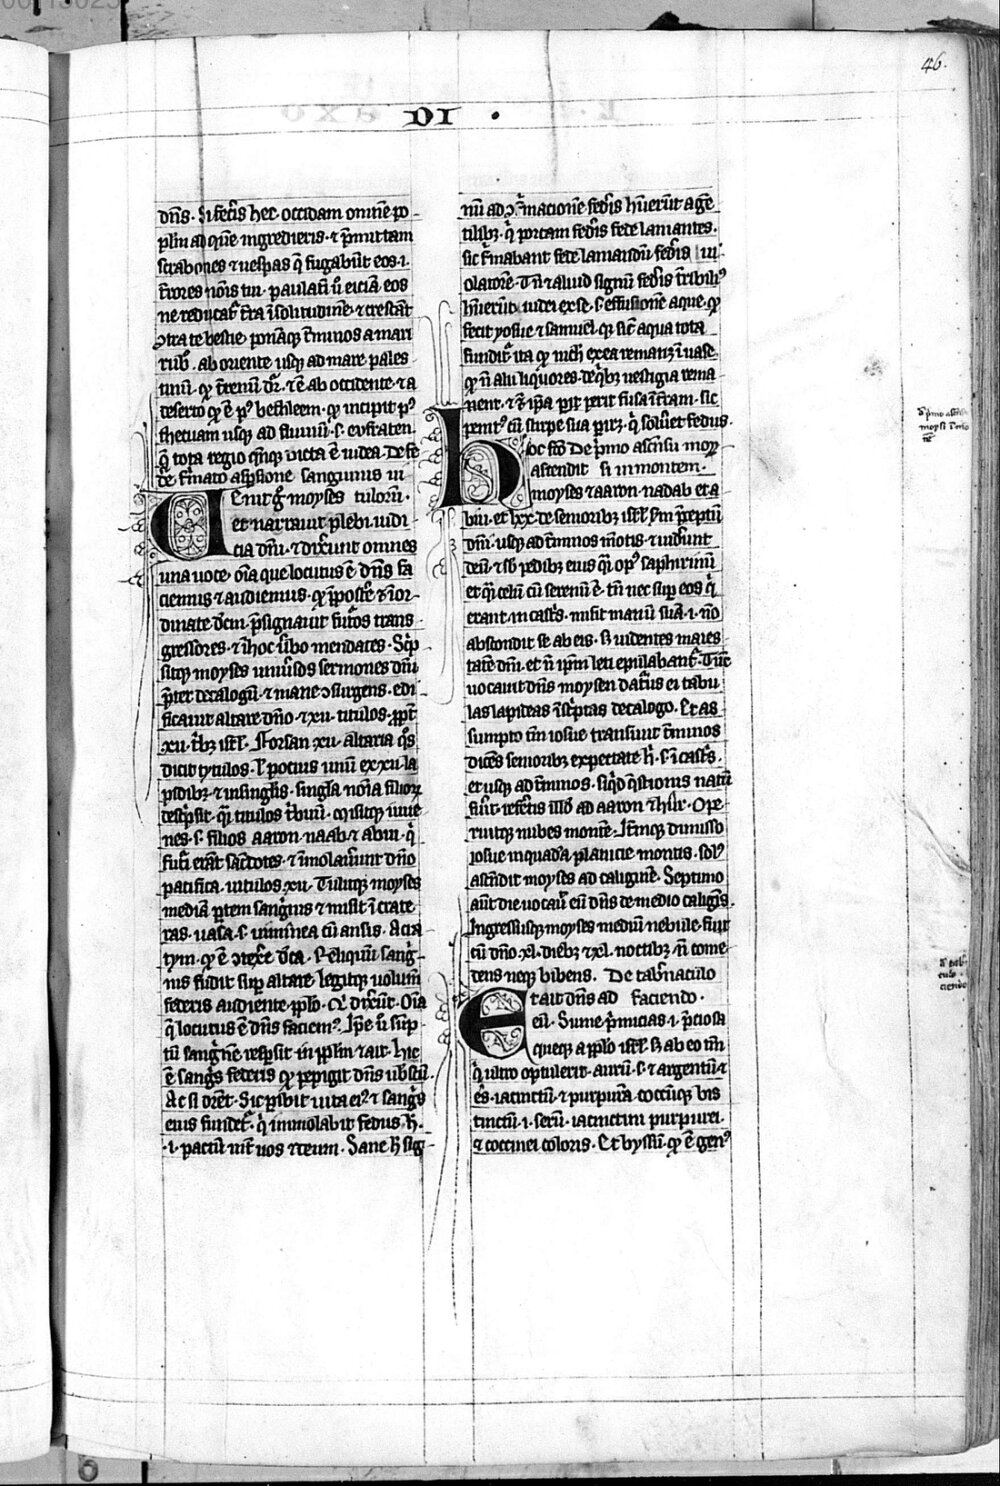 46.
DI .
dn̄s. Si fec̄is hec occidam omnē po
plm̄ ad quē ingredieris ⁊ p̄mittam
scrabones ⁊ uespas q̄ fugabūt eos .i.
t̄rores nōis tui. paulati ū eiciā eos
ne redigat᷑ t̄ra ī solitudinē ⁊ crescāt
ↄtra te bestie. ponāqꝫ t̄minos a mari
rub̄. ab oriente usqꝫ ad mare pales
tinū. qꝫ t̄renū dr̄. ⁊ ē ab occidente ⁊ a
deserto qꝫ ē pꝰ bethleem. qꝫ incipit pꝰ
thecuam usqꝫ ad fluuiū .s. eufraten
q̄ tota regio cīqꝫ dicta ē iudea. De fe
de. firmato aspsione sanguinis ui
Uenit ḡ moyses tulorū.
et narrauit plebi iudi
cia dn̄i. ⁊ dixerunt omnes
una uoce. oīa que locutus ē dn̄s fa
ciemus ⁊ audiemus. qꝫ p̄postere ⁊ inor
dinate dc̄m. p̄signauit futōs trans
gressores ⁊ in hoc ūbo mendaces. Sc̄p
sitqꝫ moyses uniūsos sermones dn̄i
p̄ter decalogū. ⁊ mane ↄsurgens. edi
ficauit altare dn̄o ⁊ xii. titulos. ꝓpt̄
xii. tribꝫ isrl̄. Forsan xii. altaria qͦs
dicit tytulos. ł pocius unū ex xii. la
pidibꝫ. ⁊ in singlis. singla nōia filiorꝝ
desc̄psit. qͥ titulos tribuū. misitqꝫ iuue
nes .s. filios aaron. naab ⁊ abiu. qͥ
futi erāt sac̄dotes. ⁊ īmolauerunt dn̄o
pacifica. uitulos xii. Tulitqꝫ moyses
mediā p̄tem sanguis ⁊ misit ī crate
ras. uasa .s. uiminea cū ansis. a cia
tym. qꝫ ē ↄtexe dc̄a. Reliquū sanḡ
nis fudit sup̄ altare. legitqꝫ uolum̄
federis audiente pplo. Qͥ dixerūt. Oīa
q̄ locutus ē dn̄s faciemꝰ. Ip̄e ū sūp
tū sanguinē respsit in pplm̄ ⁊ ait. hic
ē sangis federis qꝫ pepigit dn̄s uobiscū.
Ac si diceret. Sic pibit uita eiꝰ ⁊ sangis
eius fundet᷑. qͥ immolabit fedus h̄.
.i. pactū int̄ uos ⁊ deum. Sane h̄ sig
nū ad ↄfirmacionē federis habuerūt a gē
tilibꝫ. qͥ portam federis fede laniantes.
sic firmabant fede laniandū federis ui
olatorē. Tn̄ ⁊ aliud signū federis t̄ribiliꝰ
habuerūt iudei ex se. s. effusionē aque. qꝫ
fecit yosue ⁊ samuel. qꝫ sic aqua tota
fundit᷑. ita qꝫ nich̄ ex ea remanꝫ ī uase.
qꝫ n̄ alii liquores. de qͥbꝫ uestigia rema
nent. ⁊ ꝫ ip̄a pit perit fusa ī t̄ram. sic
pem̄tꝰ cū stirpe sua piꝫ. qͥ soluet fedus.
hoc fc̄o De p̄mo ascensu moy
ascendit si in montem.
moyses ⁊ aaron. nadab et a
biu. et lxx. de senioribꝫ isrl̄ scdm p̄ceptū
dn̄i. usqꝫ ad t̄minos mōtis. ⁊ uiderūt
deū. ⁊ sb̄ pedibꝫ eius qͥ opꝰ saphirinū
et qͥ celū cū serenū ē. tn̄ nec sup̄ eos qͥ
erant in casts. misit manū suā .i. nō
abscondit se ab eis. S uidentes maies
tatē dn̄i. et n̄ ip̄m leti epulabant᷑. Tūc
uocauit dn̄s moysen daturus ei tabu
las lapideas īsc̄ptas decalogo. Et as
sumpto secum iosue transiuit t̄minos
dicēs senioribꝫ expectate h̄ .s. ī casts.
et usqꝫ ad t̄minos. siqͥd qōstionis natū
fuīt. referetis illd̄ ad aaron ⁊ hur. Ope
ruitqꝫ nubes montē. Itemqꝫ dimisso
iosue in quadā planicie montis. solꝰ
ascendit moyses ad caliginē. Septimo
aūt die uocauit eū dn̄s de medio caliginis.
Ingressusqꝫ moyses mediū nebule. fuit
cū dn̄o .xl. diebꝫ ⁊ xl. noctibꝫ. n̄ come
dens neqꝫ bibens. De tabnaculo
Et ait dn̄s ad faciendo.
eū. Sume p̄micias .i. p̄ciosa
queqꝫ a pplo isrl̄. s ab eo tm̄
qͥ ultro optulerit. aurū .s. ⁊ argentū ⁊
es. iacinctū ⁊ purpurā coccūqꝫ bis
tinctū .i. sericū. iacinctini purpurei.
⁊ coccinei coloris. Et byssū. qꝫ ē genꝰ
d̄ p̄mo ascēsu
moysi ī mō
tē
d̄ tab